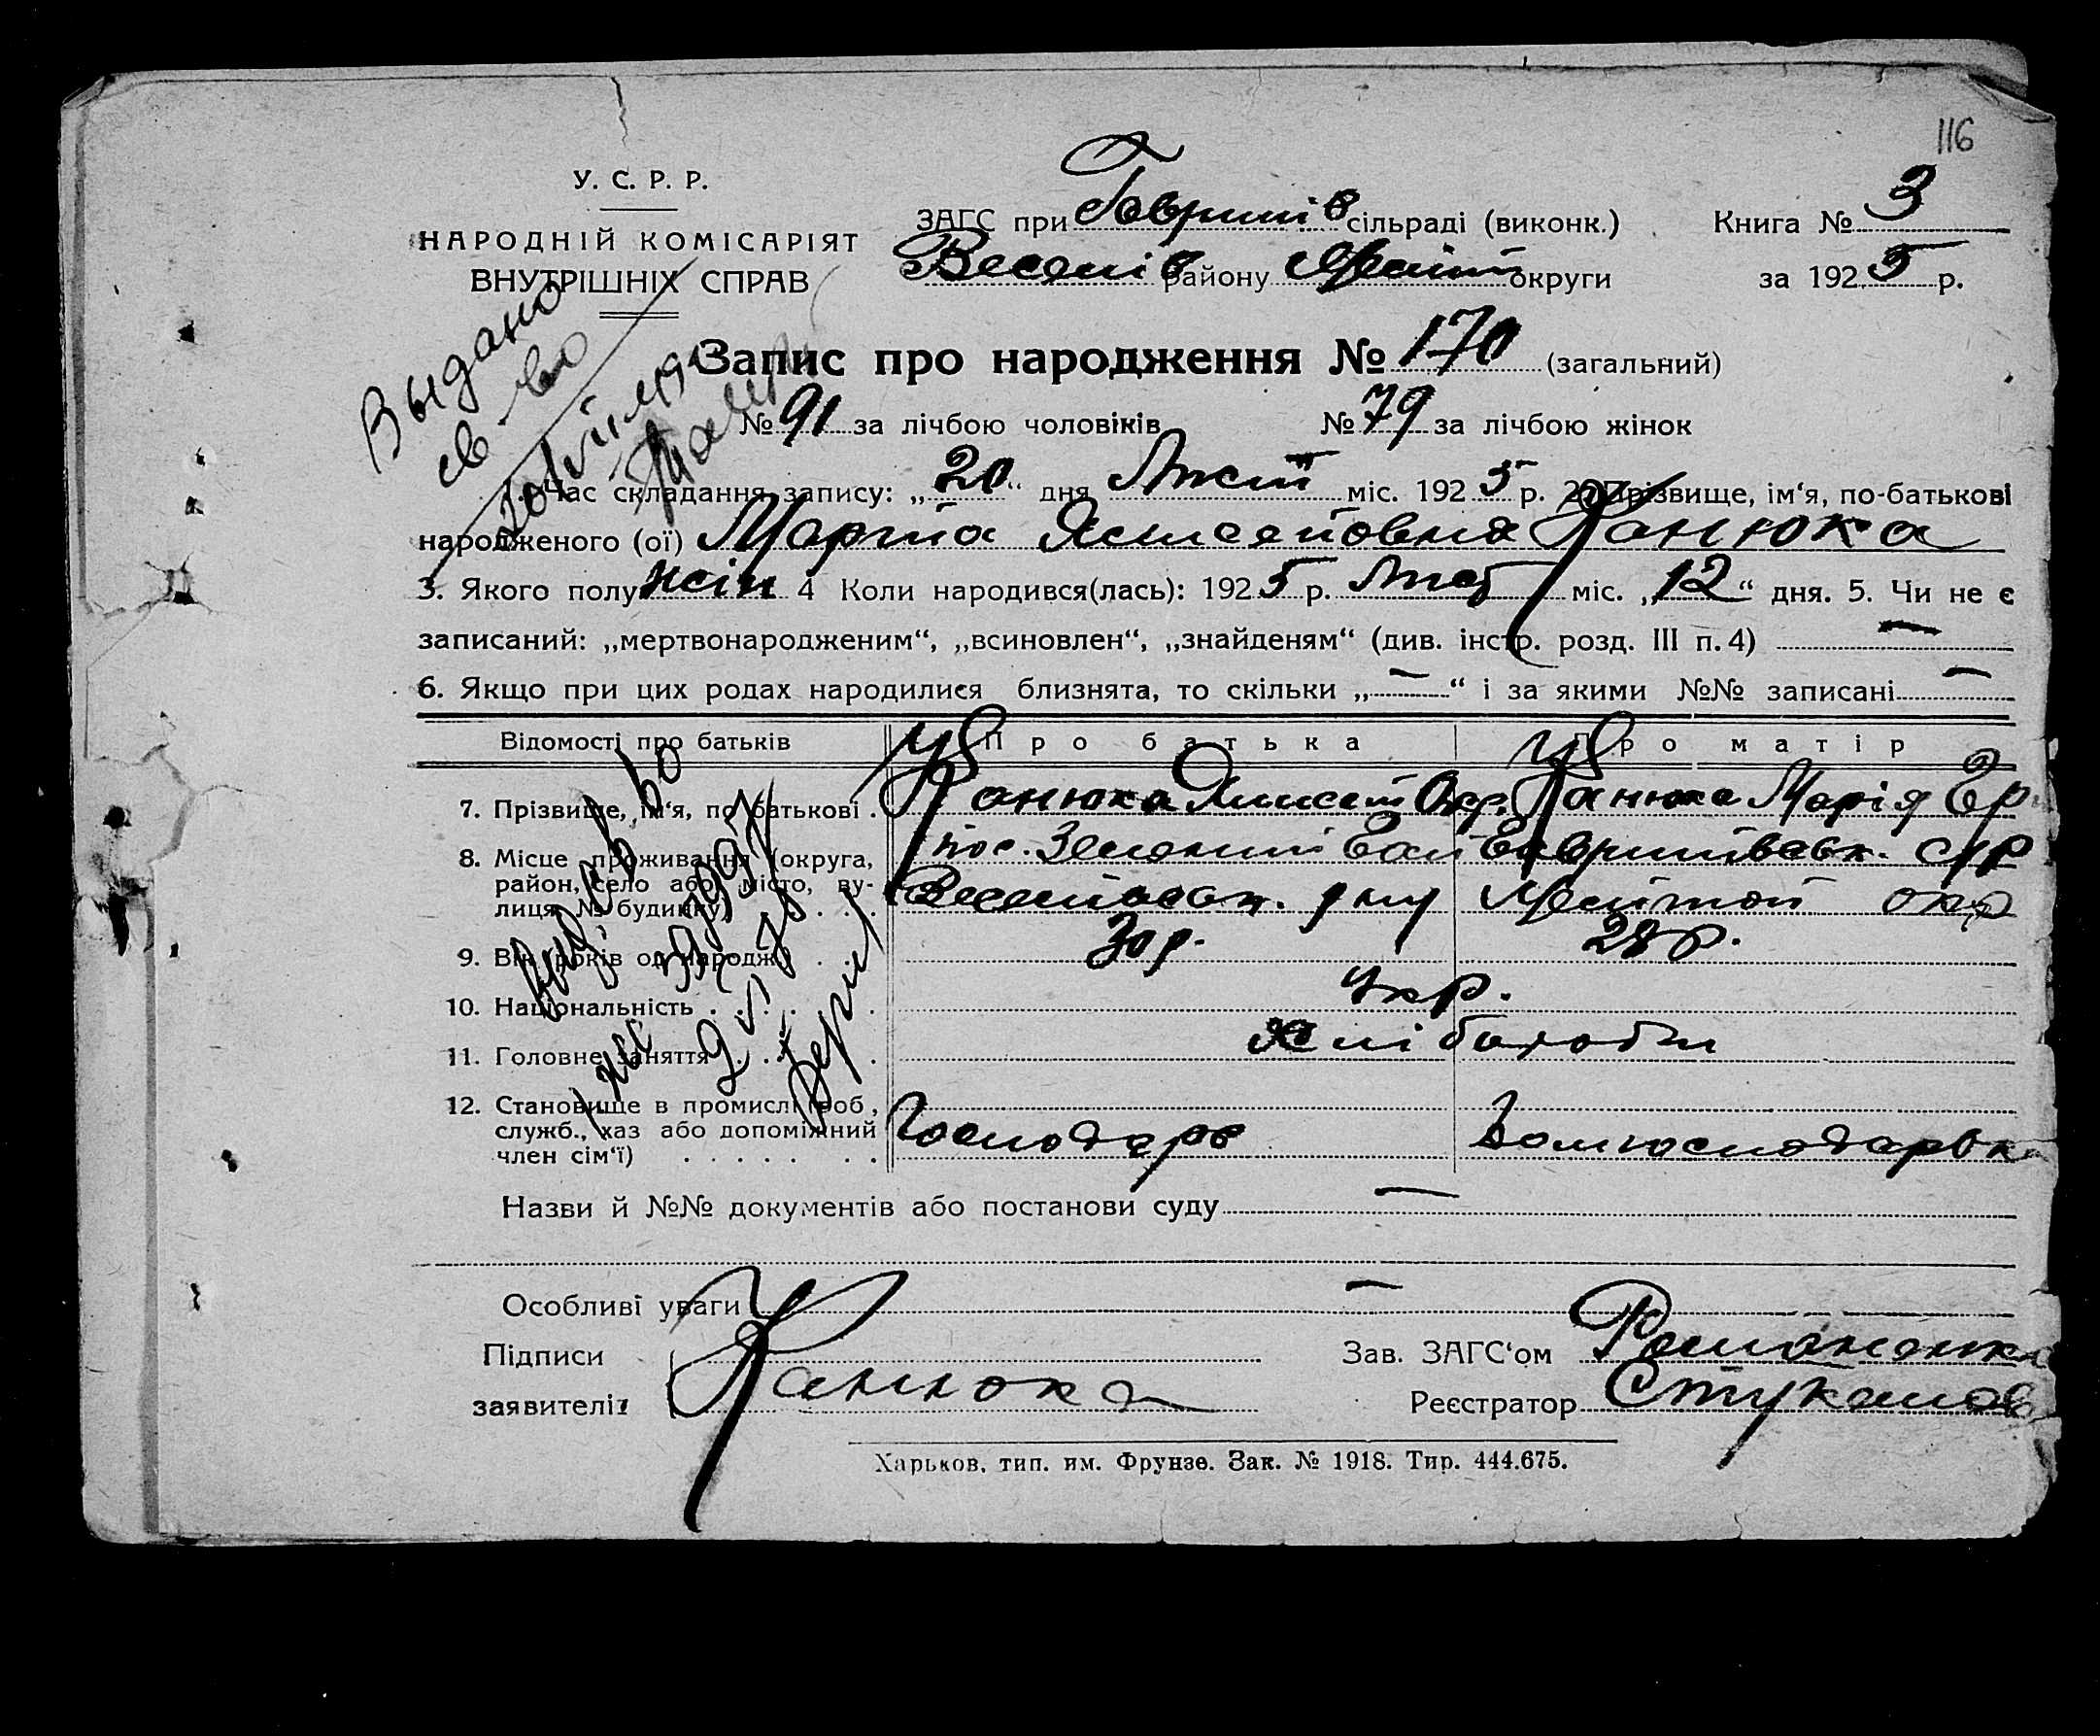 116
У. С. Р. Р.
НАРОДНІЙ КОМІСАРІЯТ
ВНУТРІШНІХ СПРАВ
ЗАГС при Гаврилів сільраді (виконк.) Книга № 3
Веселів району Меліт округи за 1925 р.
Выдано
св-во
Запис про народження № 170 (загальний)
№ 91 за лічбою чоловіків № 79 за лічбою жінок
1. Час складання запису: „20“ дня Лист міс. 1925 р. 2. Прізвище, ім‘я, по-батькові
народженого (ої) Марфа Канюка
3. Якого полу жін 4 Коли народився(лась): 1925 р. Лист міс. „12“ дня. 5. Чи не є
записаний: „мертвонародженим“, „всиновлен“, „знайденям“ (див. інстр. розд. III п. 4) —
6. Якщо при цих родах народилися близнята, то скільки „—“ і за якими №№ записані —
Відомості про батьків Про батька Про матір
7. Прізвище, ім‘я, по батькові . Канюка Канюка Марія
8. Місце проживання (округа, район, село або місто, вулиця № будинку) . . . пос. Гаврилівськ. с/р
Веселовськ. р-ну Меліттой окр
9. Вік (років од народж.) . . . 30 р. 28 р.
10. Національність . . . . . Укр.
11. Головне заняття . . . . Хлібороби
12. Становище в промислі (роб., служб., хаз або допоміжний член сім‘ї) . . . . . . . Господарь Домгосподарка
Назви й №№ документів або постанови суду —
Особливі уваги —
Підписи
заявителів Канюка
Зав. ЗАГС‘ом Романенко
Реєстратор Стукалов
Харьков, тип. им. Фрунзе. Зак. № 1918. Тир. 444.675.